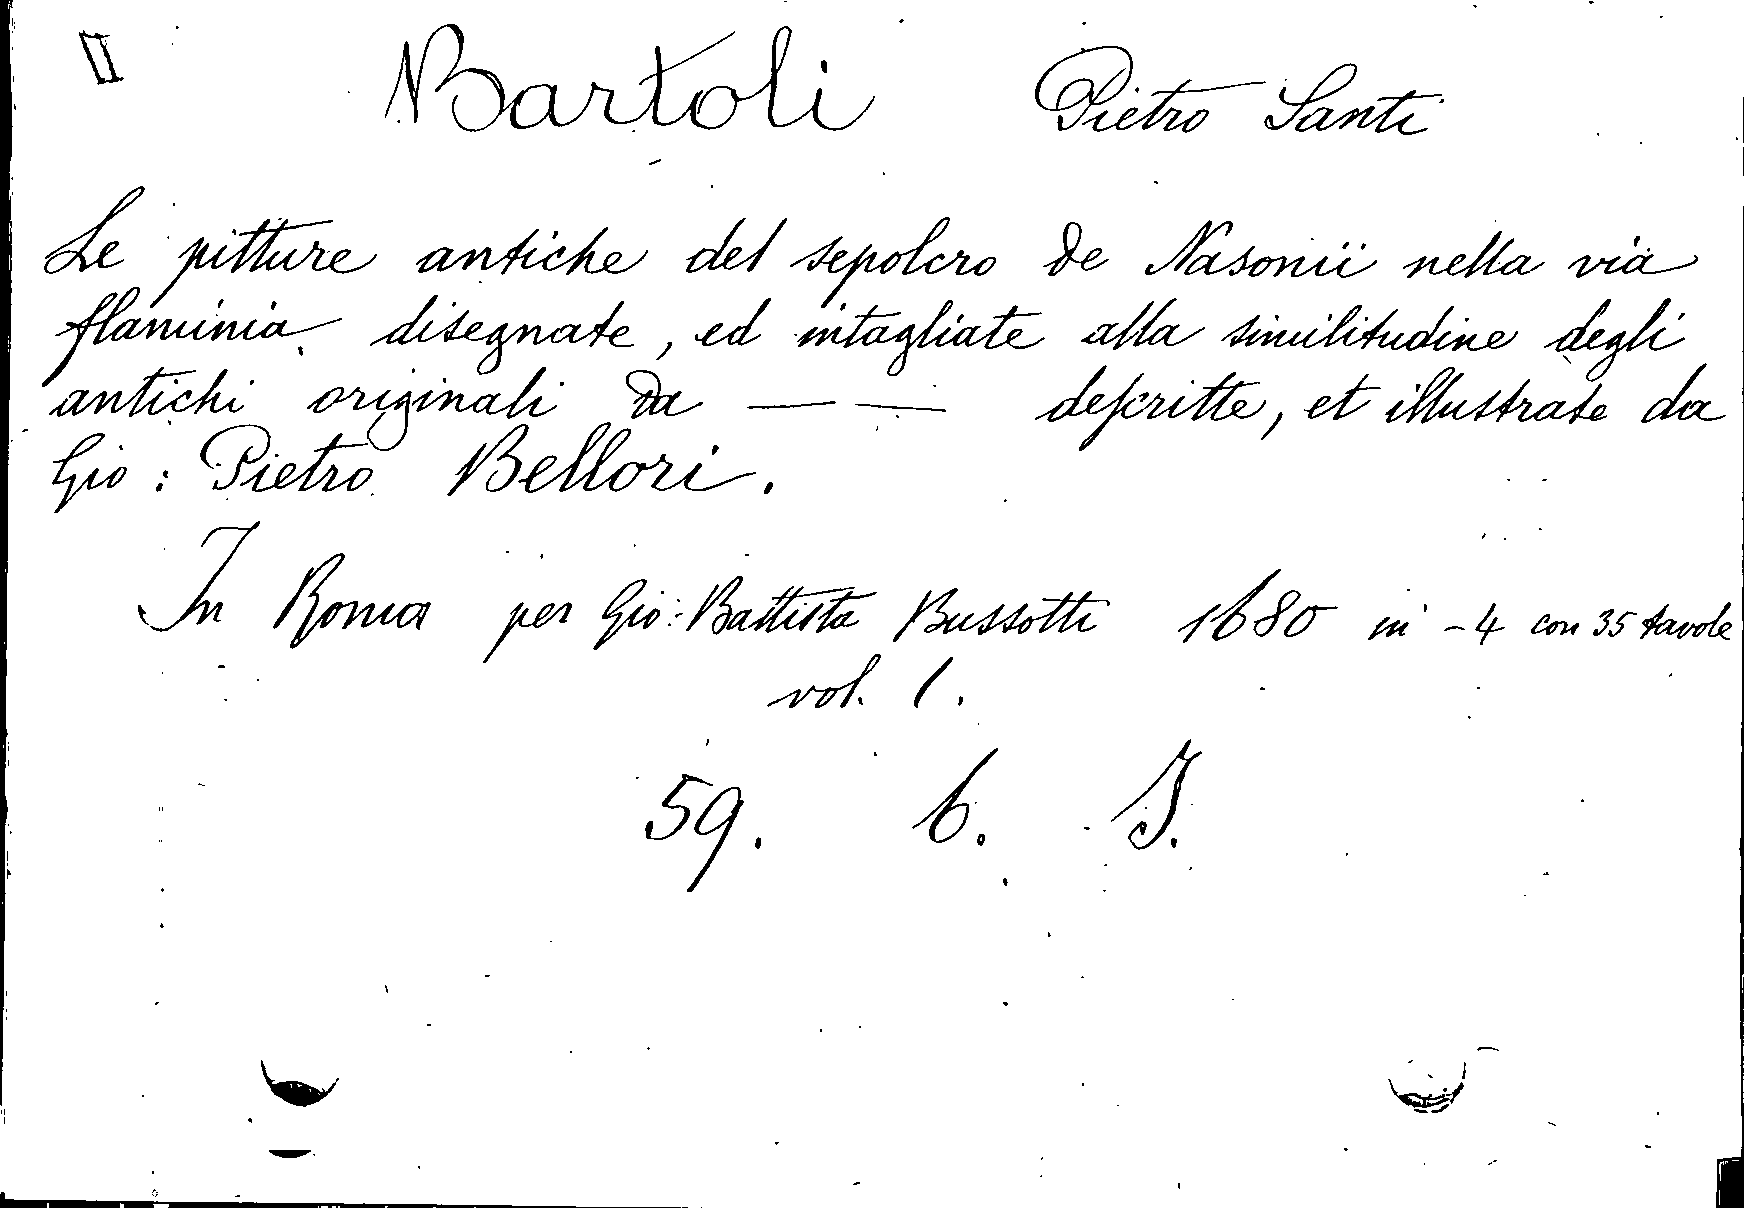 II Bartoli Pietro Santi
Le pitture antiche del sepolcro de Nasonii nella via
flaminia disegnate, ed intagliate alla similitudine degli
antichi originali da — — deſcritte, et illustrate da
Gio: Pietro Bellori.
In Roma per Gio: Battista Bussotti 1680 in -4 con 35 tavole
vol. 1.
59. 6. I.